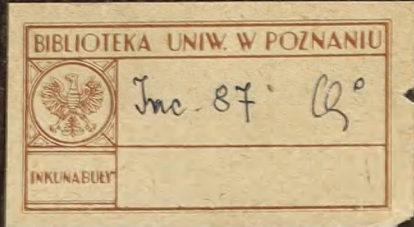 BIBLIOTEKA UNIW. W POZNANIU
Inc. 87
INKUNABUŁY